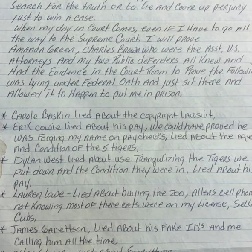 Search for the truth or to lie and come up perjury
Just to win a case.
When my day in Court Comes, even if I have to go all
the way to the Supreme Court I will prove
Amanda Green, Charles Brown who were the Asst. U.S.
Attorneys And my two Public defenders all knew and
Had the Evidence in the Court Room to Prove the
was lying under Federal Oath and just sit there and
Allowed it to Happen to put me in prison.
* Carole Baskin lied About the Copyright Lawsuit,
* Erik Cowie lied About his pay, we could have proved he
was signing my name on paychecks, lied About the age
and Condition of the 5 tigers,
* Dylan West lied About use Tranquilizing the Tigers we
put down and the Condition they were in. Lied About his
pay,
* Lauren Lowe - Lied About Calling the Zoo, Allens
not Knowing most of there cats were on my license,
Cubs,
* James Garretson, Lied About his Fake ID's and me
Calling him All the time,